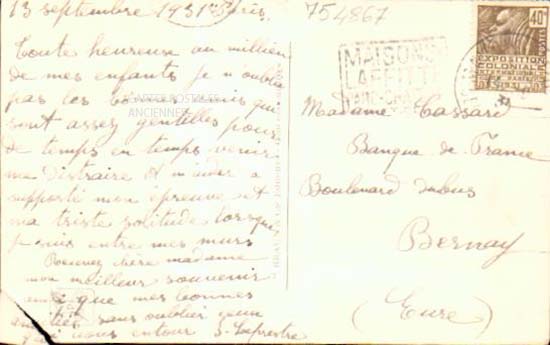 13 septembre 1931 Paris.
Toute heureuse au millieu
de mes enfants je n'oublie
pas les bonnes amis qui
sont assez gentilles pour
de temps en temps venir
me distraire et m'aider a
supporté mon épreuve et
ma triste solitude lorsque
je suis entre mes murs
Recevez chère madame
mon meilleur souvenir
ainsi que mes bonnes
amitiés sans oublier ceux
qui vous entour S. Laprestre
CARTES POSTALES
ANCIENNES
754867
MAISONS
LAFFITTE
PARC
40c
POSTES
EXPOSITION
COLONIALE
INTERNATIONALE
PARIS 1931
Madame Cassard
Banque de France
Boulevard dubus
Bernay
(Eure)